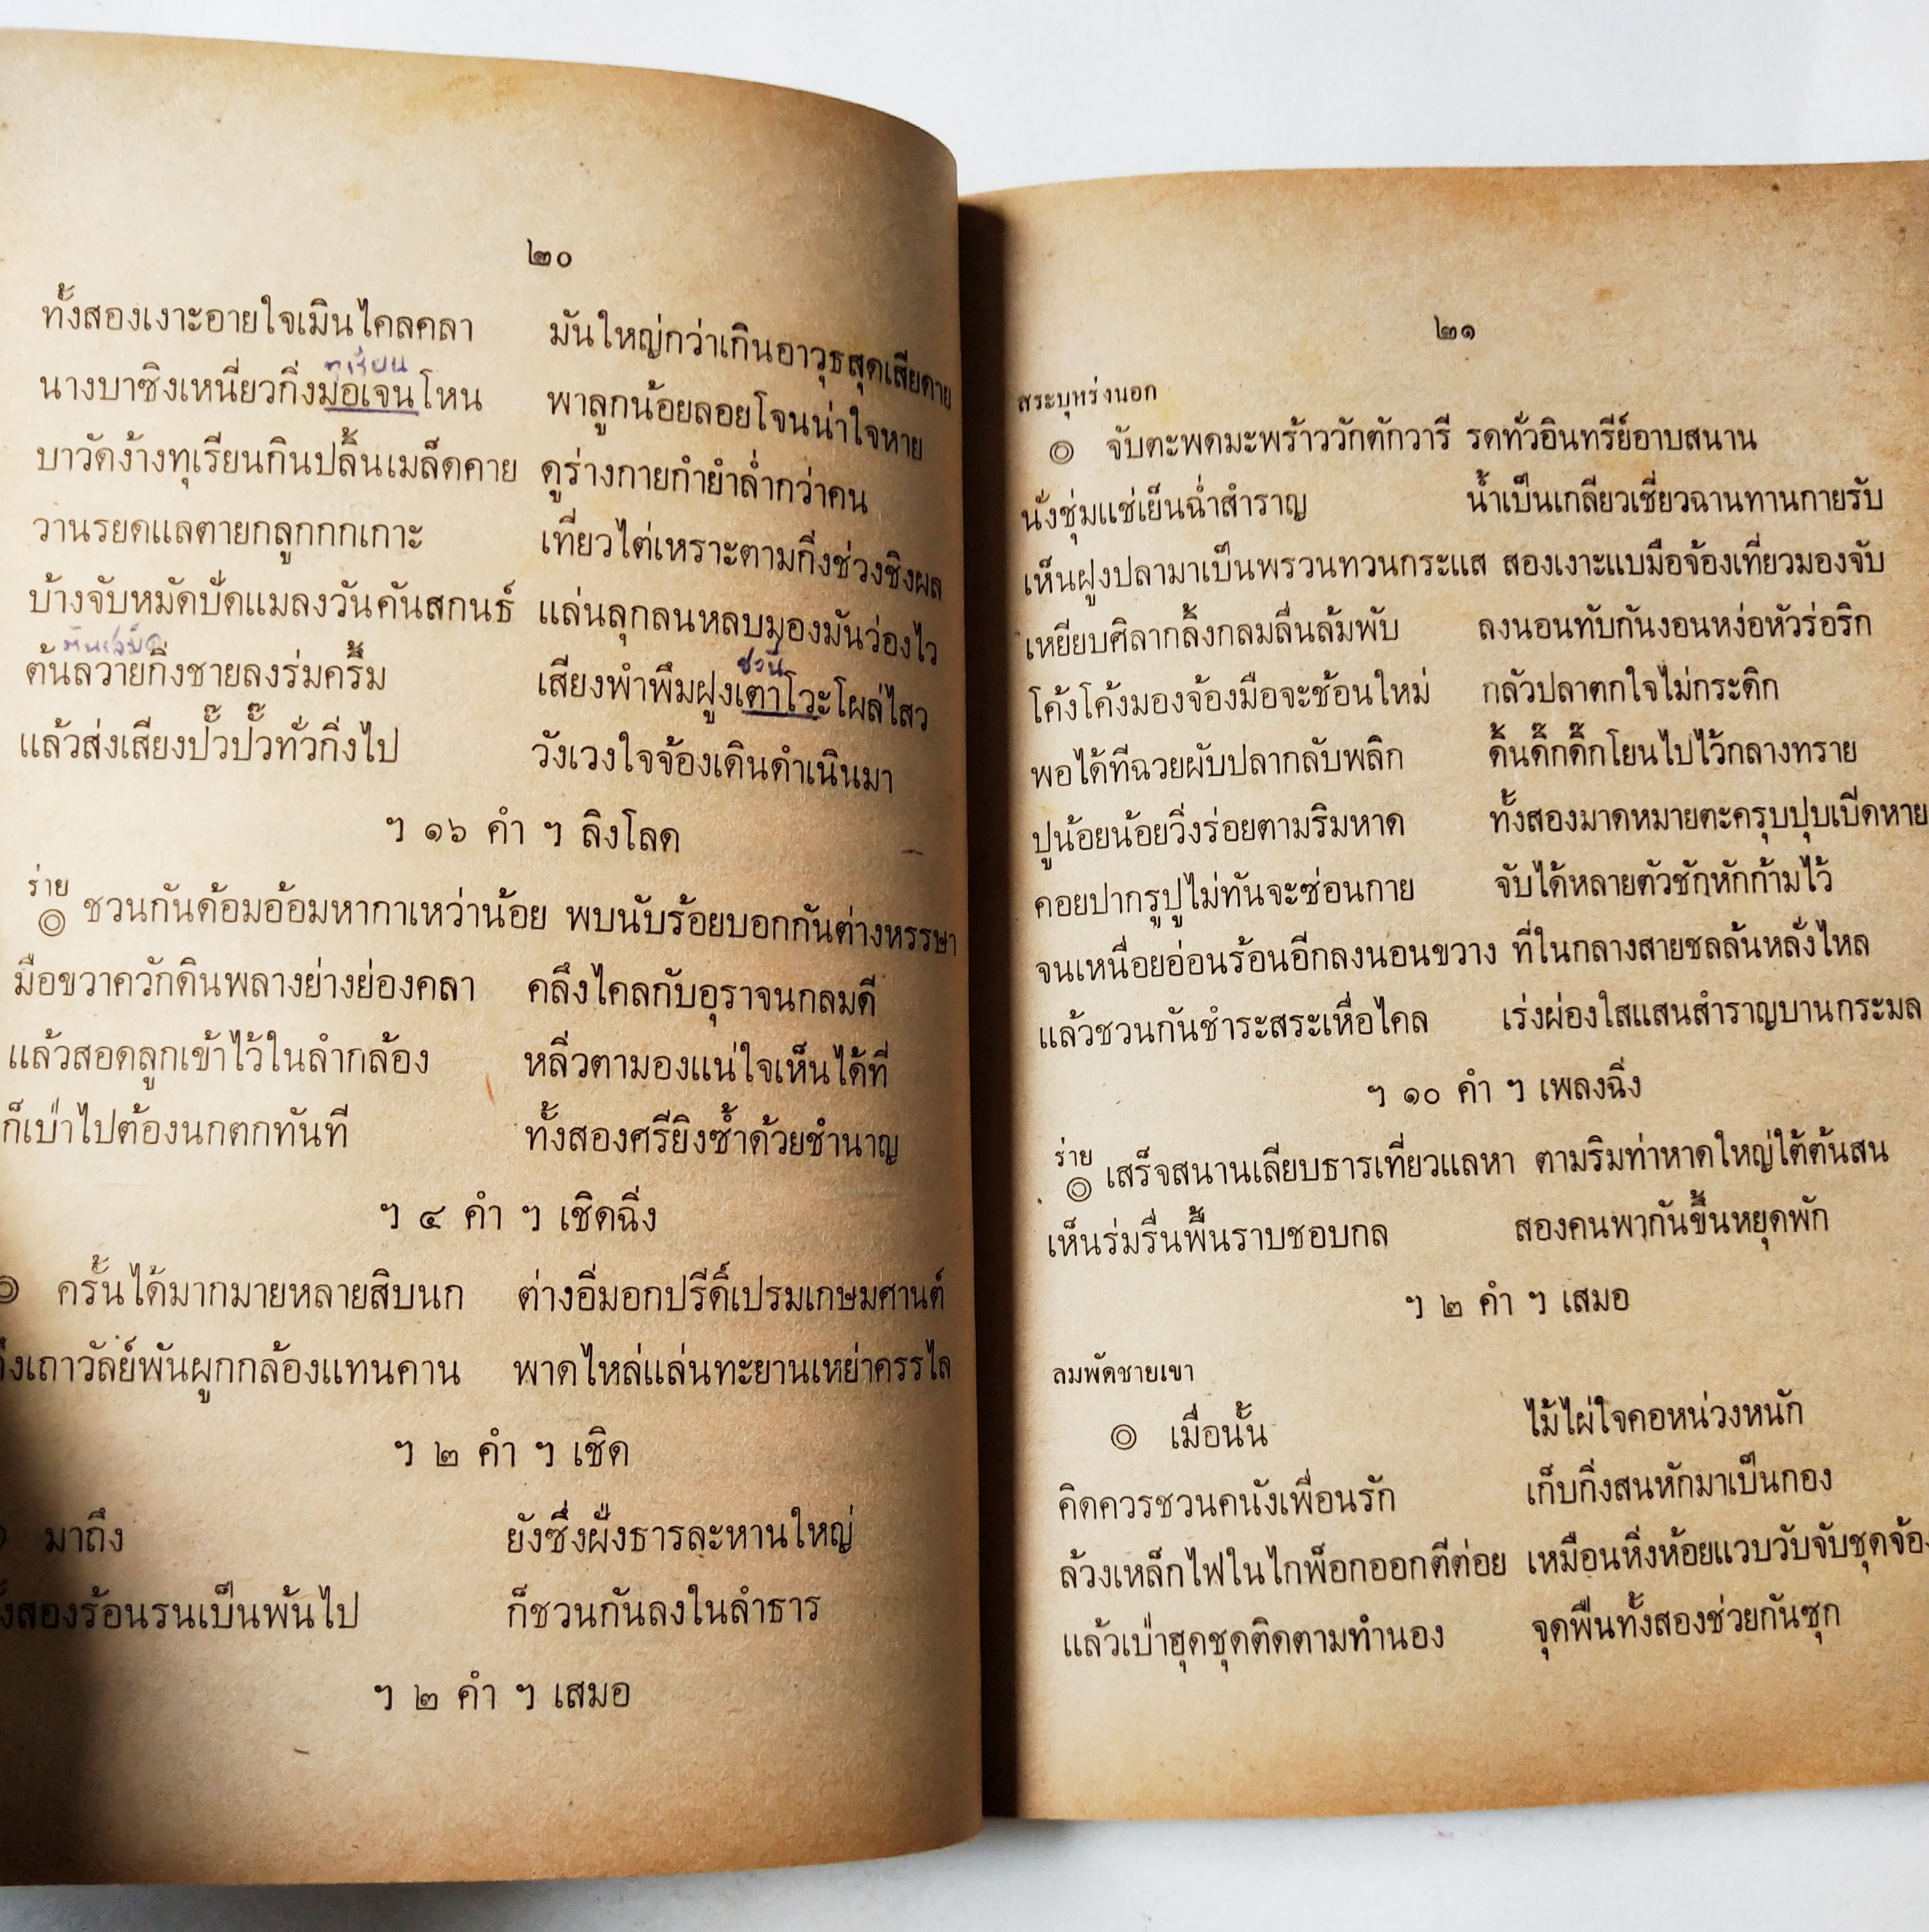 ๒๐
ทั้งสองเงาะอายใจเมินไคลคลา มันใหญ่กว่าเกินอาวุธสุดเสียดาย
ทุเรียน
นางบาซิงเหนี่ยวกิ่งม่อเจนโหน พาลูกน้อยลอยโจนน่าใจหาย
บาวัดง้างทุเรียนกินปลิ้นเมล็ดคาย ดูร่างกายกำยำล่ำกว่าคน
วานรยดแลตายกลูกกกเกาะ เที่ยวไต่เหราะตามกิ่งช่วงชิงผล
บ้างจับหมัดปัดแมลงวันคันสกนธ์ แล่นลุกลนหลบมองมันว่องไว
ชวนี
ต้นลวายกิ่งชายลงร่มครึ้ม เสียงพำพึมฝูงเตาโวะโผล่ไสว
แล้วส่งเสียงปั๊วปั๊วทั่วกิ่งไป วังเวงใจจ้องเดินดำเนินมา
ฯ ๑๖ คำ ฯ ลิงโลด
ร่าย
๏ ชวนกันด้อมอ้อมหากาเหว่าน้อย พบนับร้อยบอกกันต่างหรรษา
มือขวาควักดินพลางย่างย่องคลา คลึงไคลกับอุราจนกลมดี
แล้วสอดลูกเข้าไว้ในลำกล้อง หลิ่วตามองแน่ใจเห็นได้ที่
ก็เป่าไปต้องนกตกทันที ทั้งสองศรียิงซ้ำด้วยชำนาญ
ฯ ๔ คำ ฯ เชิดฉิ่ง
๏ ครั้นได้มากมายหลายสิบนก ต่างอิ่มอกปรีดิ์เปรมเกษมศานต์
เถาวัลย์พันผูกกล้องแทนคาน พาดไหล่แล่นทะยานเหย่าครรไล
ฯ ๒ คำ ฯ เชิด
๏ มาถึง ยังซึ่งฝั่งธารละหานใหญ่
ทั้งสองร้อนรนเป็นพ้นไป ก็ชวนกันลงในลำธาร
ฯ ๒ คำ ฯ เสมอ
๒๑
สระบุหร่งนอก
๏ จับตะพดมะพร้าววักตักวารี รดทั่วอินทรีย์อาบสนาน
นั่งชุ่มแช่เย็นฉ่ำสำราญ น้ำเป็นเกลียวเชี่ยวฉานทานกายรับ
เห็นฝูงปลามาเป็นพรวนทวนกระแส สองเงาะแบมือจ้องเที่ยวมองจับ
เหยียบศิลากลิ้งกลมลื่นล้มพับ ลงนอนทับกันงอนหง่อหัวร่อริก
โค้งโค้งมองจ้องมือจะช้อนใหม่ กลัวปลาตกใจไม่กระดิก
พอได้ทีฉวยผับปลากลับพลิก ดิ้นดิ๊กดิ๊กโยนไปไว้กลางทราย
ปูน้อยน้อยวิ่งร่อยตามริมหาด ทั้งสองมาดหมายตะครุบปุบเบีดหาย
คอยปากรูปูไม่ทันจะซ่อนกาย จับได้หลายตัวชักหักก้ามไว้
จนเหนื่อยอ่อนร้อนอีกลงนอนขวาง ที่ในกลางสายชลล้นหลั่งไหล
แล้วชวนกันชำระสระเหื่อไคล เร่งผ่องใสแสนสำราญบานกระมล
ฯ ๑๐ คำ ฯ เพลงฉิ่ง
ร่าย
๏ เสร็จสนานเลียบธารเที่ยวแลหา ตามริมท่าหาดใหญ่ใต้ต้นสน
เห็นร่มรื่นพื้นราบชอบกล สองคนพากันขึ้นหยุดพัก
ฯ ๒ คำ ฯ เสมอ
ลมพัดชายเขา
๏ เมื่อนั้น ไม้ไผ่ใจคอหน่วงหนัก
คิดควรชวนคนังเพื่อนรัก เก็บกิ่งสนหักมาเป็นกอง
ล้วงเหล็กไฟในไกพ็อกออกตีต่อย เหมือนหิ่งห้อยแวบวับจับชุดจ้อง
แล้วเป่าฮุดชุดติดตามทำนอง จุดพืนทั้งสองช่วยกันซุก